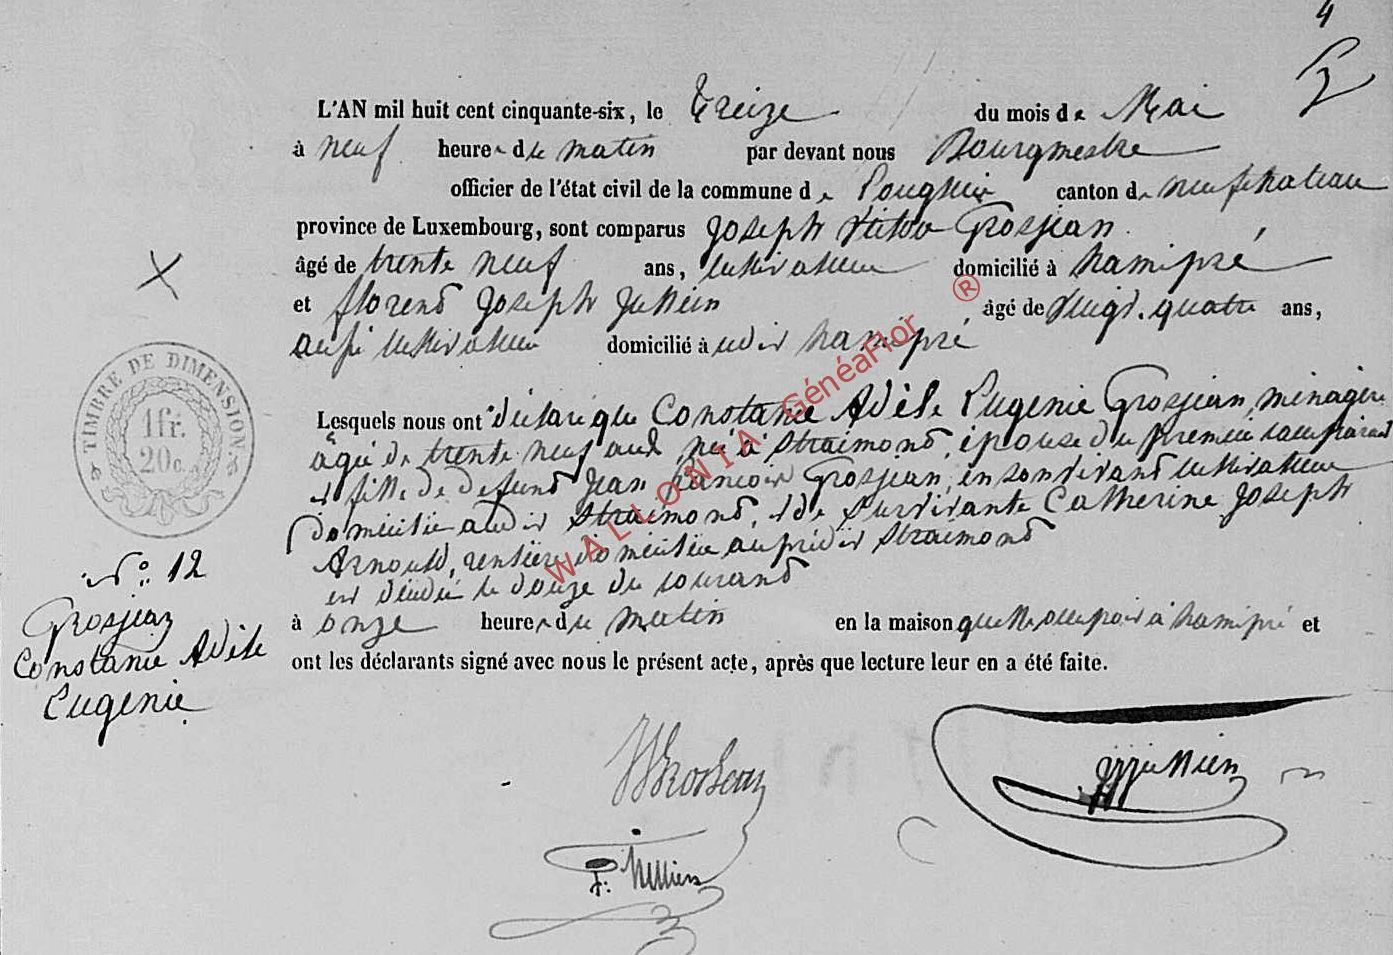 4
L'AN mil huit cent cinquante-six, le treize du mois de Mai
à neuf heures du matin par devant nous Bourgmestre
officier de l'état civil de la commune de Longlier canton de neufchateau
province de Luxembourg, sont comparus Joseph Victor Grosjean
âgé de trente neuf ans, cultivateur domicilié à hamipré
et florend Joseph Jullien âgé de vingt-quatre ans,
aussi cultivateur domicilié à udit hamipré
Lesquels nous ont déclaré que Constance Adèle Eugenie Grosjean, ménagère
âgée de trente neuf ans née à Straimond, épouse du premier comparant
et fille de defund Jean francois Grosjean, en son vivand cultivateur
domicilié audit Straimond, et de survivante Catherine Joseph
Arnould, rentière domiciliée au prédit Straimond
est décédée le douze du courand
à onze heures du matin en la maison qu'elle occupoit à hamipré et
ont les déclarants signé avec nous le présent acte, après que lecture leur en a été faite.
TIMBRE DE DIMENSION.
1 fr.
20 c.
N° 12
Grosjean
Constance Adèle
Eugenie
WALLONIA GénéaFlor ®
Grosjean
Jullien